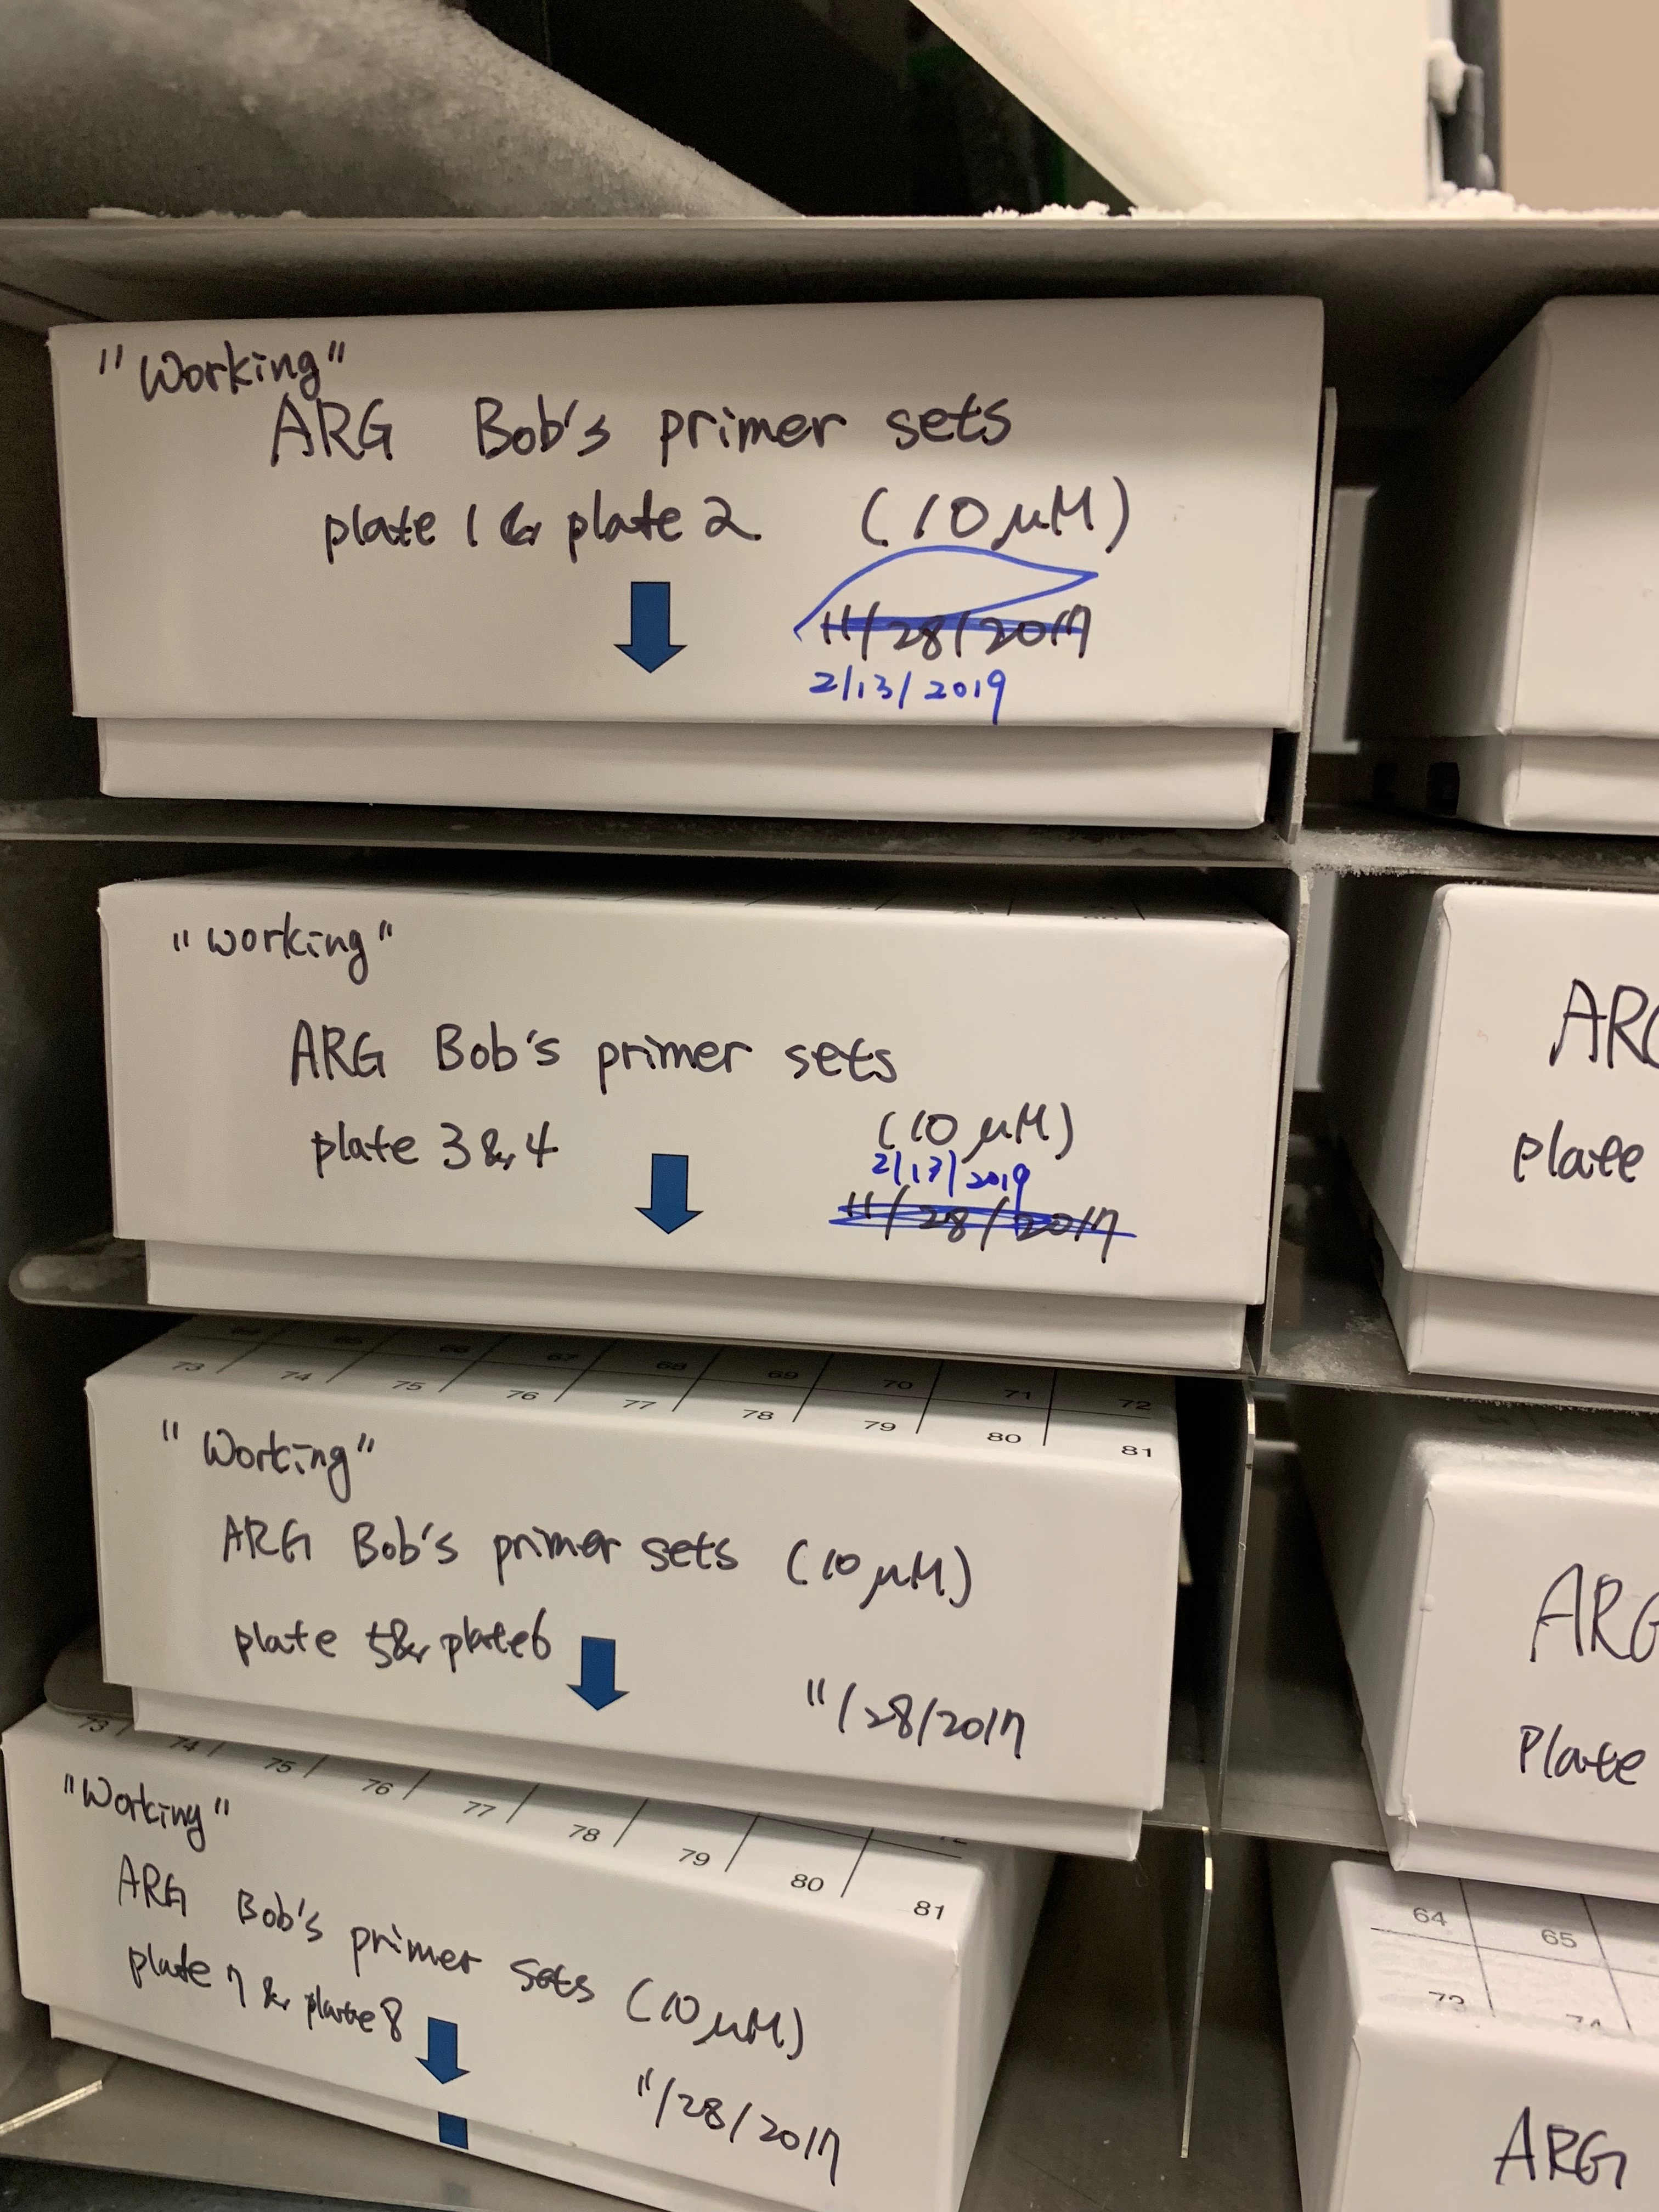 "Working"
ARG Bob's primer sets
plate 1 & plate 2 (10 µM)
11/28/2017
2/13/2019
"working"
ARG Bob's primer sets
plate 3 & 4 (10 µM)
2/13/2019
11/28/2017
64 65 66 67 68 69 70 71 72
73 74 75 76 77 78 79 80 81
"Working"
ARG Bob's primer sets (10 µM)
plate 5 & plate 6
11/28/2017
72
73 74 75 76 77 78 79 80 81
"Working"
ARG Bob's primer sets (10 µM)
plate 7 & plate 8
11/28/2017
plate
Plate
64 65
73 74
ARG